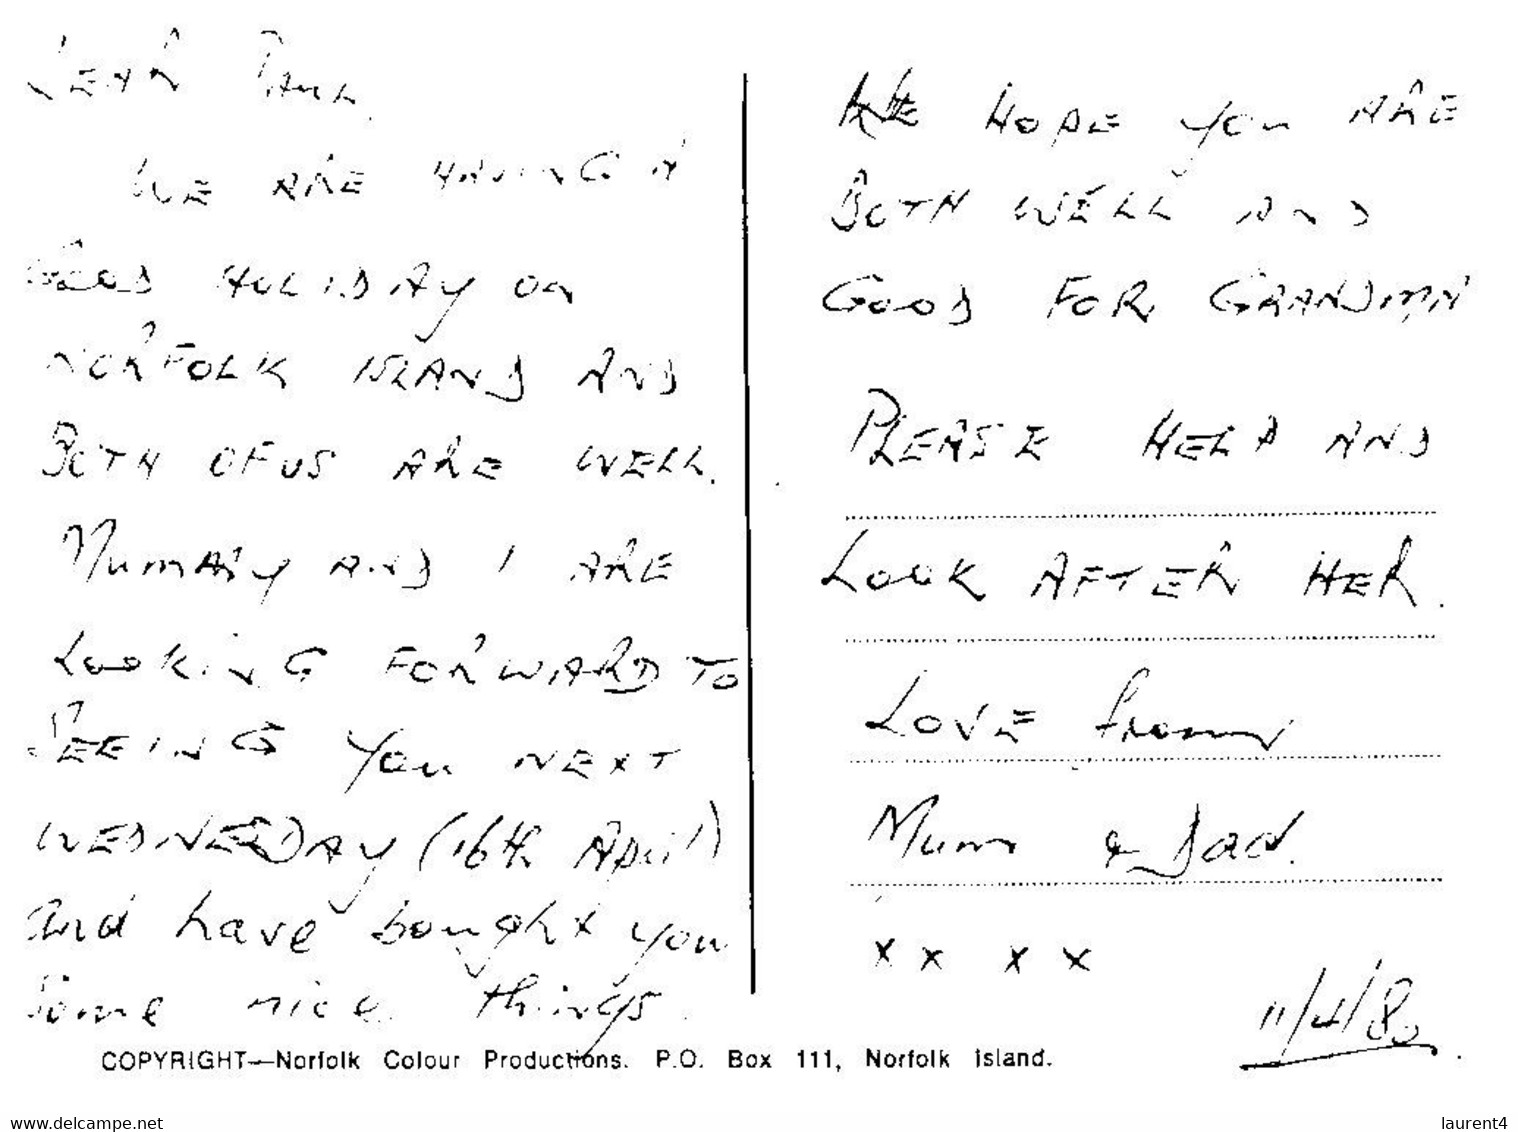 DEAR PAUL,
WE ARE HAVING A
GOOD HOLIDAY ON
NORFOLK ISLAND AND
BOTH OF US ARE WELL.
MUMMY AND I ARE
LOOKING FORWARD TO
SEEING YOU NEXT
WEDNESDAY (16th April)
and have bought you
some nice things.
WE HOPE YOU ARE
BOTH WELL AND
GOOD FOR GRANDMA
PLEASE HELP AND
LOOK AFTER HER.
LOVE from
Mum & Dad.
x x x x
11/4/80
COPYRIGHT—Norfolk Colour Productions. P.O. Box 111, Norfolk Island.
www.delcampe.net
laurent4